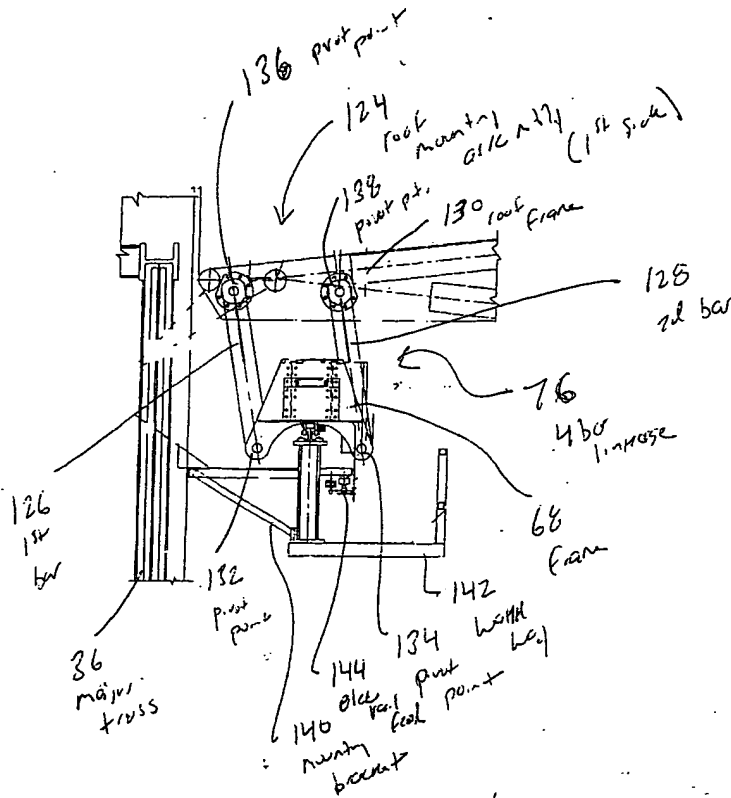 136 pivot point
124
roof
mounting
assembly (1st side)
138
pivot pt.
130 roof
frame
128
2d bar
76
4 bar
linkage
68
frame
126
1st
bar
132
pivot
point
142
walk
way
134
pivot
point
144
elec
rail
feed
36
major
truss
140
mounting
bracket